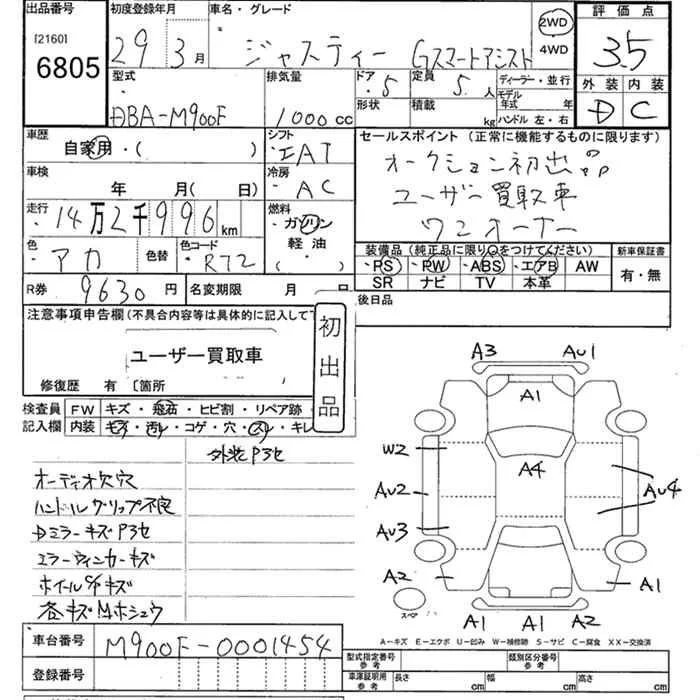 出品番号
[2160]
6805
初度登録年月
29年3月
車名・グレード
ジャスティー Gスマートアシスト
2WD
4WD
評価点
3.5
外装 内装
D C
型式
DBA-M900F
排気量
1000cc
ドア・5
形状
定員 5人
積載 kg
ディーラー・並行
モデル年式 年
ハンドル 左・右
車歴
自家用・( )
シフト
・IAT
セールスポイント (正常に機能するものに限ります)
オークション初出品
ユーザー買取車
ワンオーナー
車検
年 月( 日)
冷房
・AC
走行
・14万2千996km
燃料
ガソリン
軽油
・( ・)
色
・アカ
色替
色コード
・R72
装備品(純正品に限り○をつけてください)
・PS ・PW ・ABS ・エアB AW
SR ナビ TV 本革
新車保証書
有・無
R券 9630円
名変期限 月 日
後日品
注意事項申告欄(不具合内容等は具体的に記入して下
ユーザー買取車
初出品
修復歴 有 〔箇所
検査員記入欄
FW キズ・飛石・ヒビ割・リペア跡・
内装 キズ・汚レ・コゲ・穴・スレ・キレ
外装P3セ
オーディオ欠穴
ハンドルグリップ不良
DミラーキズP3セ
ミラーウィンカーキズ
ホイール4/4キズ
各キズMホシュウ
A3 AU1
A1
W2
A4
AU2 AU4
AU3
A2 A1
スペア
A1 A1 A2
A-キズ E-エクボ U-凹み W-補修跡 S-サビ C-腐食 XX-交換済
車台番号 M900F-0001454
登録番号
型式指定番号 参考
類別区分番号 参考
車庫証明用 参考 長さ cm 幅 cm 高さ cm